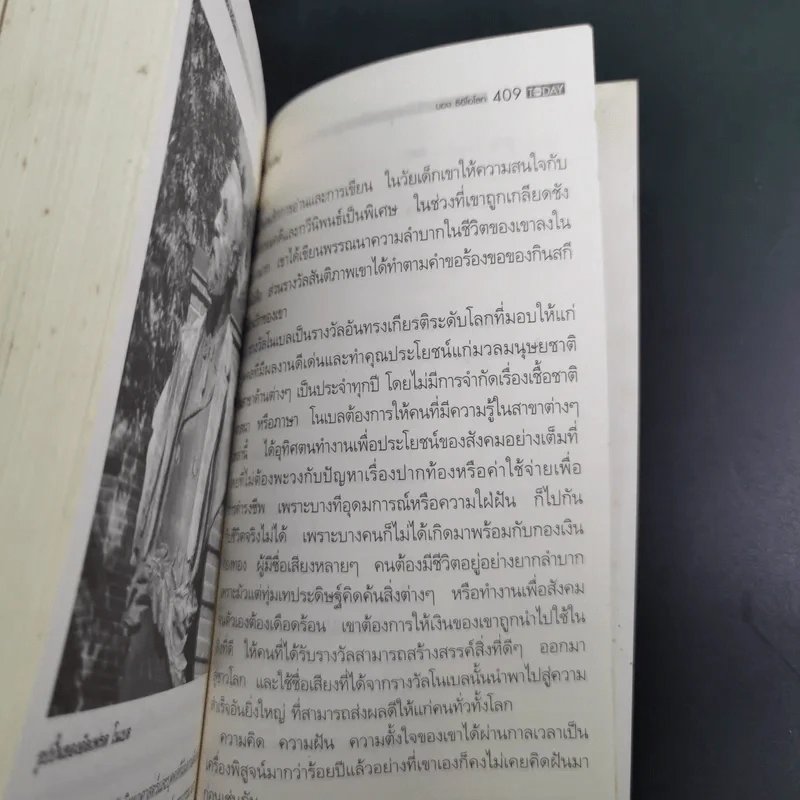 409 TODAY
การอ่านและการเขียน ในวัยเด็กเขาให้ความสนใจกับ
และกวีนิพนธ์เป็นพิเศษ ในช่วงที่เขาถูกเกลียดชัง
เขาได้เขียนพรรณนาความลำบากในชีวิตของเขาลงใน
ส่วนรางวัลสันติภาพเขาได้ทำตามคำขอร้องขอของกินสกี
ของเขา
รางวัลโนเบลเป็นรางวัลอันทรงเกียรติระดับโลกที่มอบให้แก่
ที่มีผลงานดีเด่นและทำคุณประโยชน์แก่มวลมนุษยชาติ
สาขาด้านต่างๆ เป็นประจำทุกปี โดยไม่มีการจำกัดเรื่องเชื้อชาติ
หรือภาษา โนเบลต้องการให้คนที่มีความรู้ในสาขาต่างๆ
ได้อุทิศตนทำงานเพื่อประโยชน์ของสังคมอย่างเต็มที่
ที่ไม่ต้องพะวงกับปัญหาเรื่องปากท้องหรือค่าใช้จ่ายเพื่อ
การดำรงชีพ เพราะบางทีอุดมการณ์หรือความใฝ่ฝัน ก็ไปกัน
ชีวิตจริงไม่ได้ เพราะบางคนก็ไม่ได้เกิดมาพร้อมกับกองเงิน
ผู้มีชื่อเสียงหลายๆ คนต้องมีชีวิตอยู่อย่างยากลำบาก
เพราะมัวแต่ทุ่มเทประดิษฐ์คิดค้นสิ่งต่างๆ หรือทำงานเพื่อสังคม
ตัวเองต้องเดือดร้อน เขาต้องการให้เงินของเขาถูกนำไปใช้ใน
ที่ดี ให้คนที่ได้รับรางวัลสามารถสร้างสรรค์สิ่งที่ดีๆ ออกมา
สู่ชาวโลก และใช้ชื่อเสียงที่ได้จากรางวัลโนเบลนั้นนำพาไปสู่ความ
สำเร็จอันยิ่งใหญ่ ที่สามารถส่งผลดีให้แก่คนทั่วทั้งโลก
ความคิด ความฝัน ความตั้งใจของเขาได้ผ่านกาลเวลาเป็น
เครื่องพิสูจน์มากว่าร้อยปีแล้วอย่างที่เขาเองก็คงไม่เคยคิดฝันมา
ก่อนเช่นกัน
รูปปั้นของอัลเฟรด โนเบล